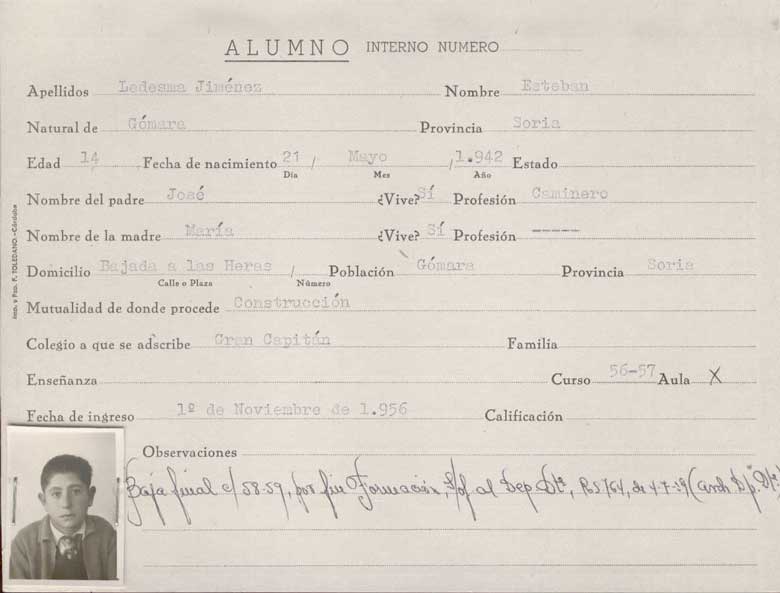 ALUMNO INTERNO NUMERO
Apellidos Ledesma Jiménez Nombre Esteban
Natural de Gómara Provincia Soria
Edad 14 Fecha de nacimiento 21 / Mayo / 1.942 Estado
Día Mes Año
Nombre del padre José ¿Vive? Sí Profesión Caminero
Nombre de la madre María ¿Vive? Sí Profesión -----
Domicilio Bajada a las Heras / Población Gómara Provincia Soria
Calle o Plaza Número
Mutualidad de donde procede Construcción
Colegio a que se adscribe Gran Capitán Familia
Enseñanza Curso 56-57 Aula X
Fecha de ingreso 1º de Noviembre de 1.956 Calificación
Observaciones
Baja final c/ 58-59, por fin Formación, al Dep
Imp. y Pap. F. TOLEDANO.-Córdoba